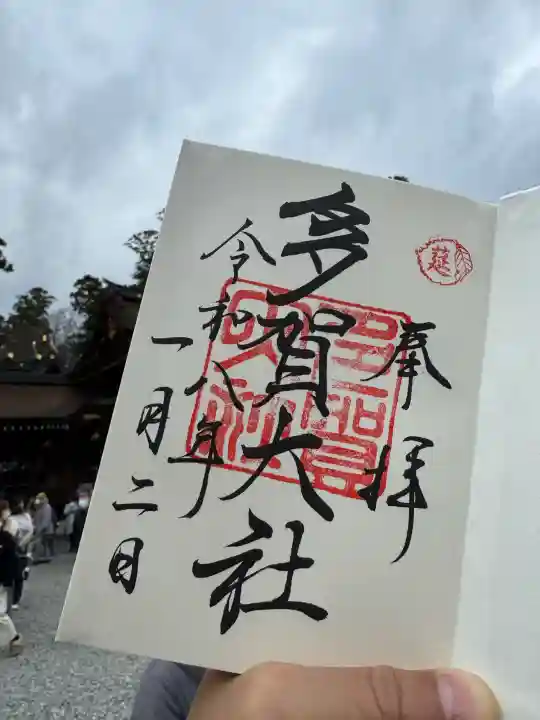 莚
奉拝
多賀大社
多賀大社
令和八年
一月二日